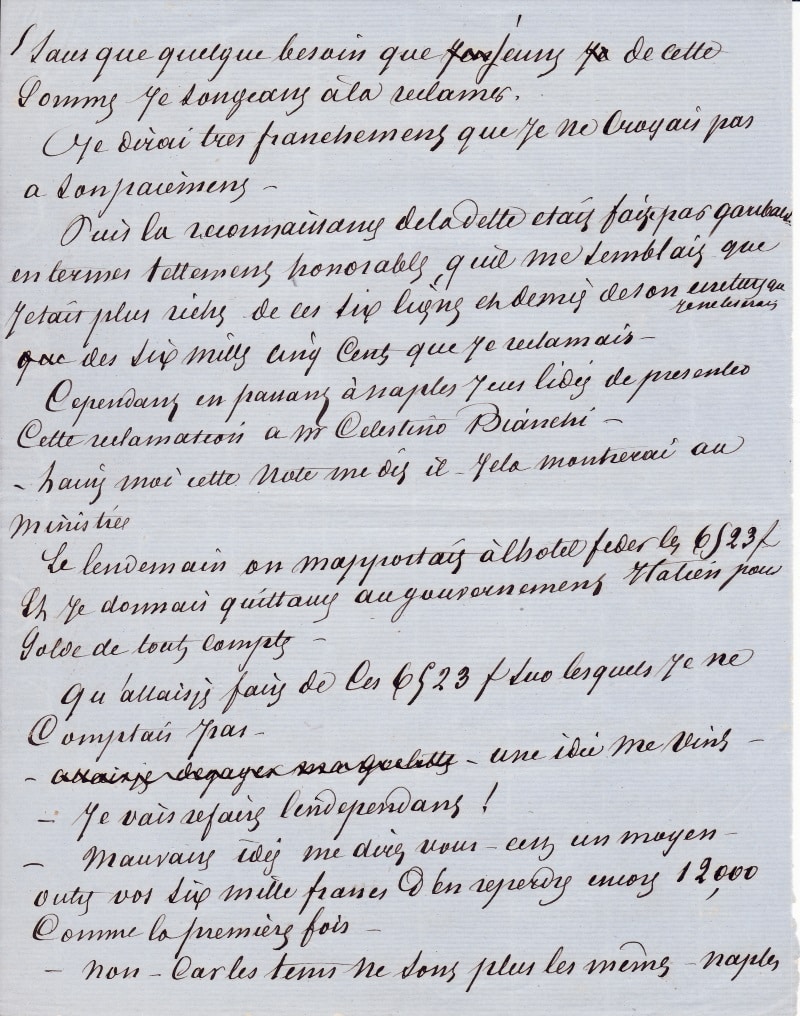 Sans que quelque besoin que j'eusse de cette
Somme Je songeasse à la reclamer.
Je dirai tres franchement que Je ne Croyais pas
a son paiement –
Puis la reconnaissance de la dette etait faite par garibaldi
en termes tellement honorables, qu'il me semblait que
J etait plus riche de ces six lignes et demie de son ecriture que
Je ne les serais
que des six mille cinq Cents que Je reclamais –
Cependant en passant à naples J eus l idée de presenter
Cette reclamation a mr Celestino Bianchi –
– Laissez moi cette Note me dit il – Je la montrerai au
ministère
Le lendemain on m apportait à l hotel feder les 6523 f
Et Je donnais quittance au gouvernement Italien pour
Solde de tout compte –
Qu'allais je faire de Ces 6523 f sur lesquels Je ne
Comptais pas –
– allais je degager ma goelette – une idée me vint –
– Je vais refaire l'independant !
– Mauvaise idée me direz vous – cest un moyen
outre vos six mille francs d'en reperdre encore 12,000
Comme la première fois –
– non – Car les tems ne sont plus les mêmes – naples